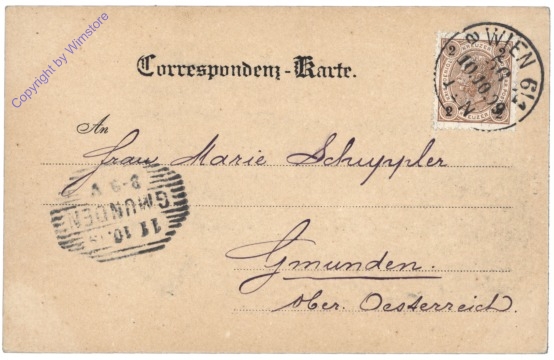 Copyright by Wimstore
Correspondenz-Karte.
WIEN 6/1
10.10.9
2 2
2 2
An
Frau Marie Schuppler
GMUNDEN
11 10
8-9 V
Gmunden.
Ober. Oesterreich.